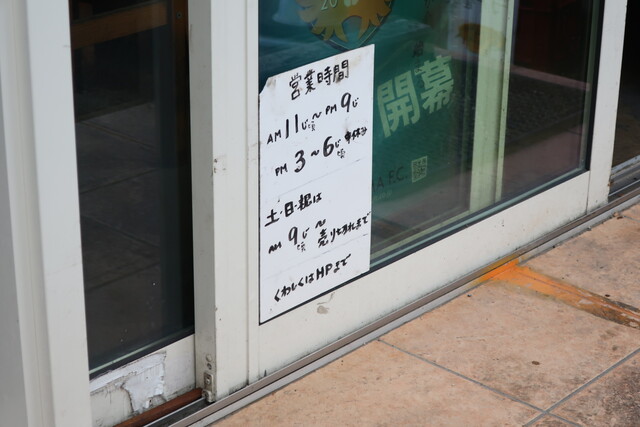 20
開幕
MA F.C.
営業時間
AM 11じ頃〜PM 9じ
PM 3〜6じ頃 中休み
土・日・祝は
AM 9じ頃〜売り切れまで
くわしくはHPまで